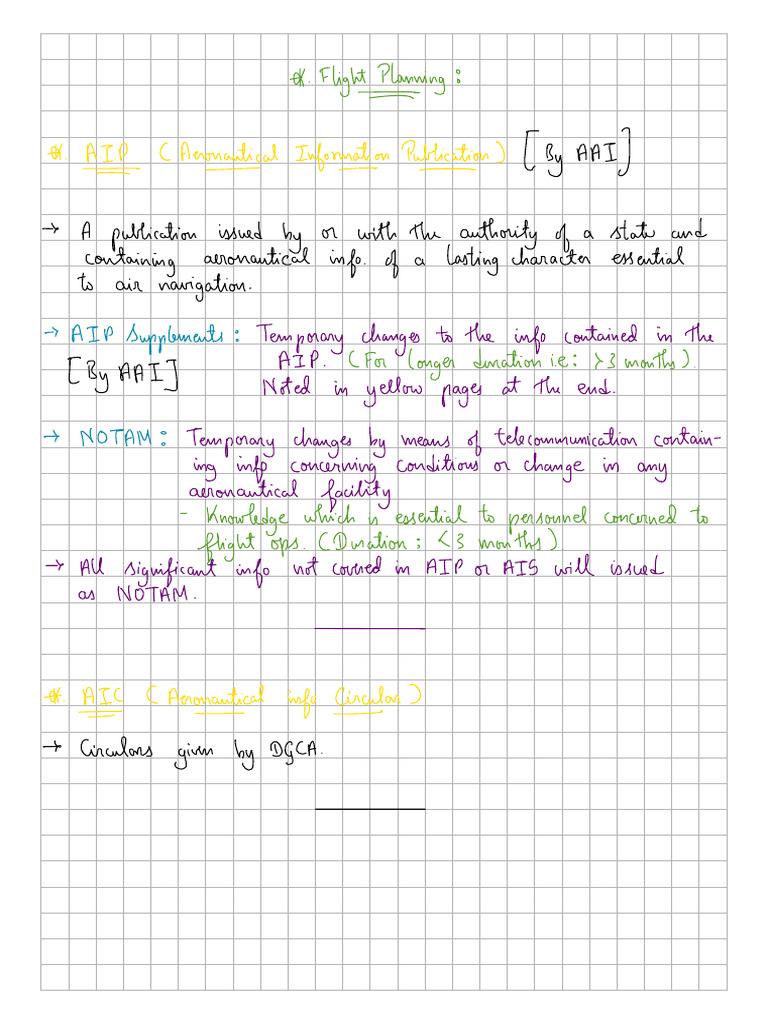 *. Flight Planning :
*. A.I.P (Aeronautical Information Publication) [By AAI]
→ A publication issued by or with the authority of a state and
containing aeronautical info. of a lasting character essential
to air navigation.
→ AIP Supplements : Temporary changes to the info contained in the
[By AAI] AIP. (For longer duration i.e: >3 months).
Noted in yellow pages at the end.
→ NOTAM : Temporary changes by means of telecommunication contain-
ing info concerning conditions or change in any
aeronautical facility
- Knowledge which is essential to personnel concerned to
flight ops. (Duration : <3 months)
→ All significant info not covered in AIP or AIS will issued
as NOTAM.
*. AIC (Aeronautical info Circular)
→ Circulars given by DGCA.